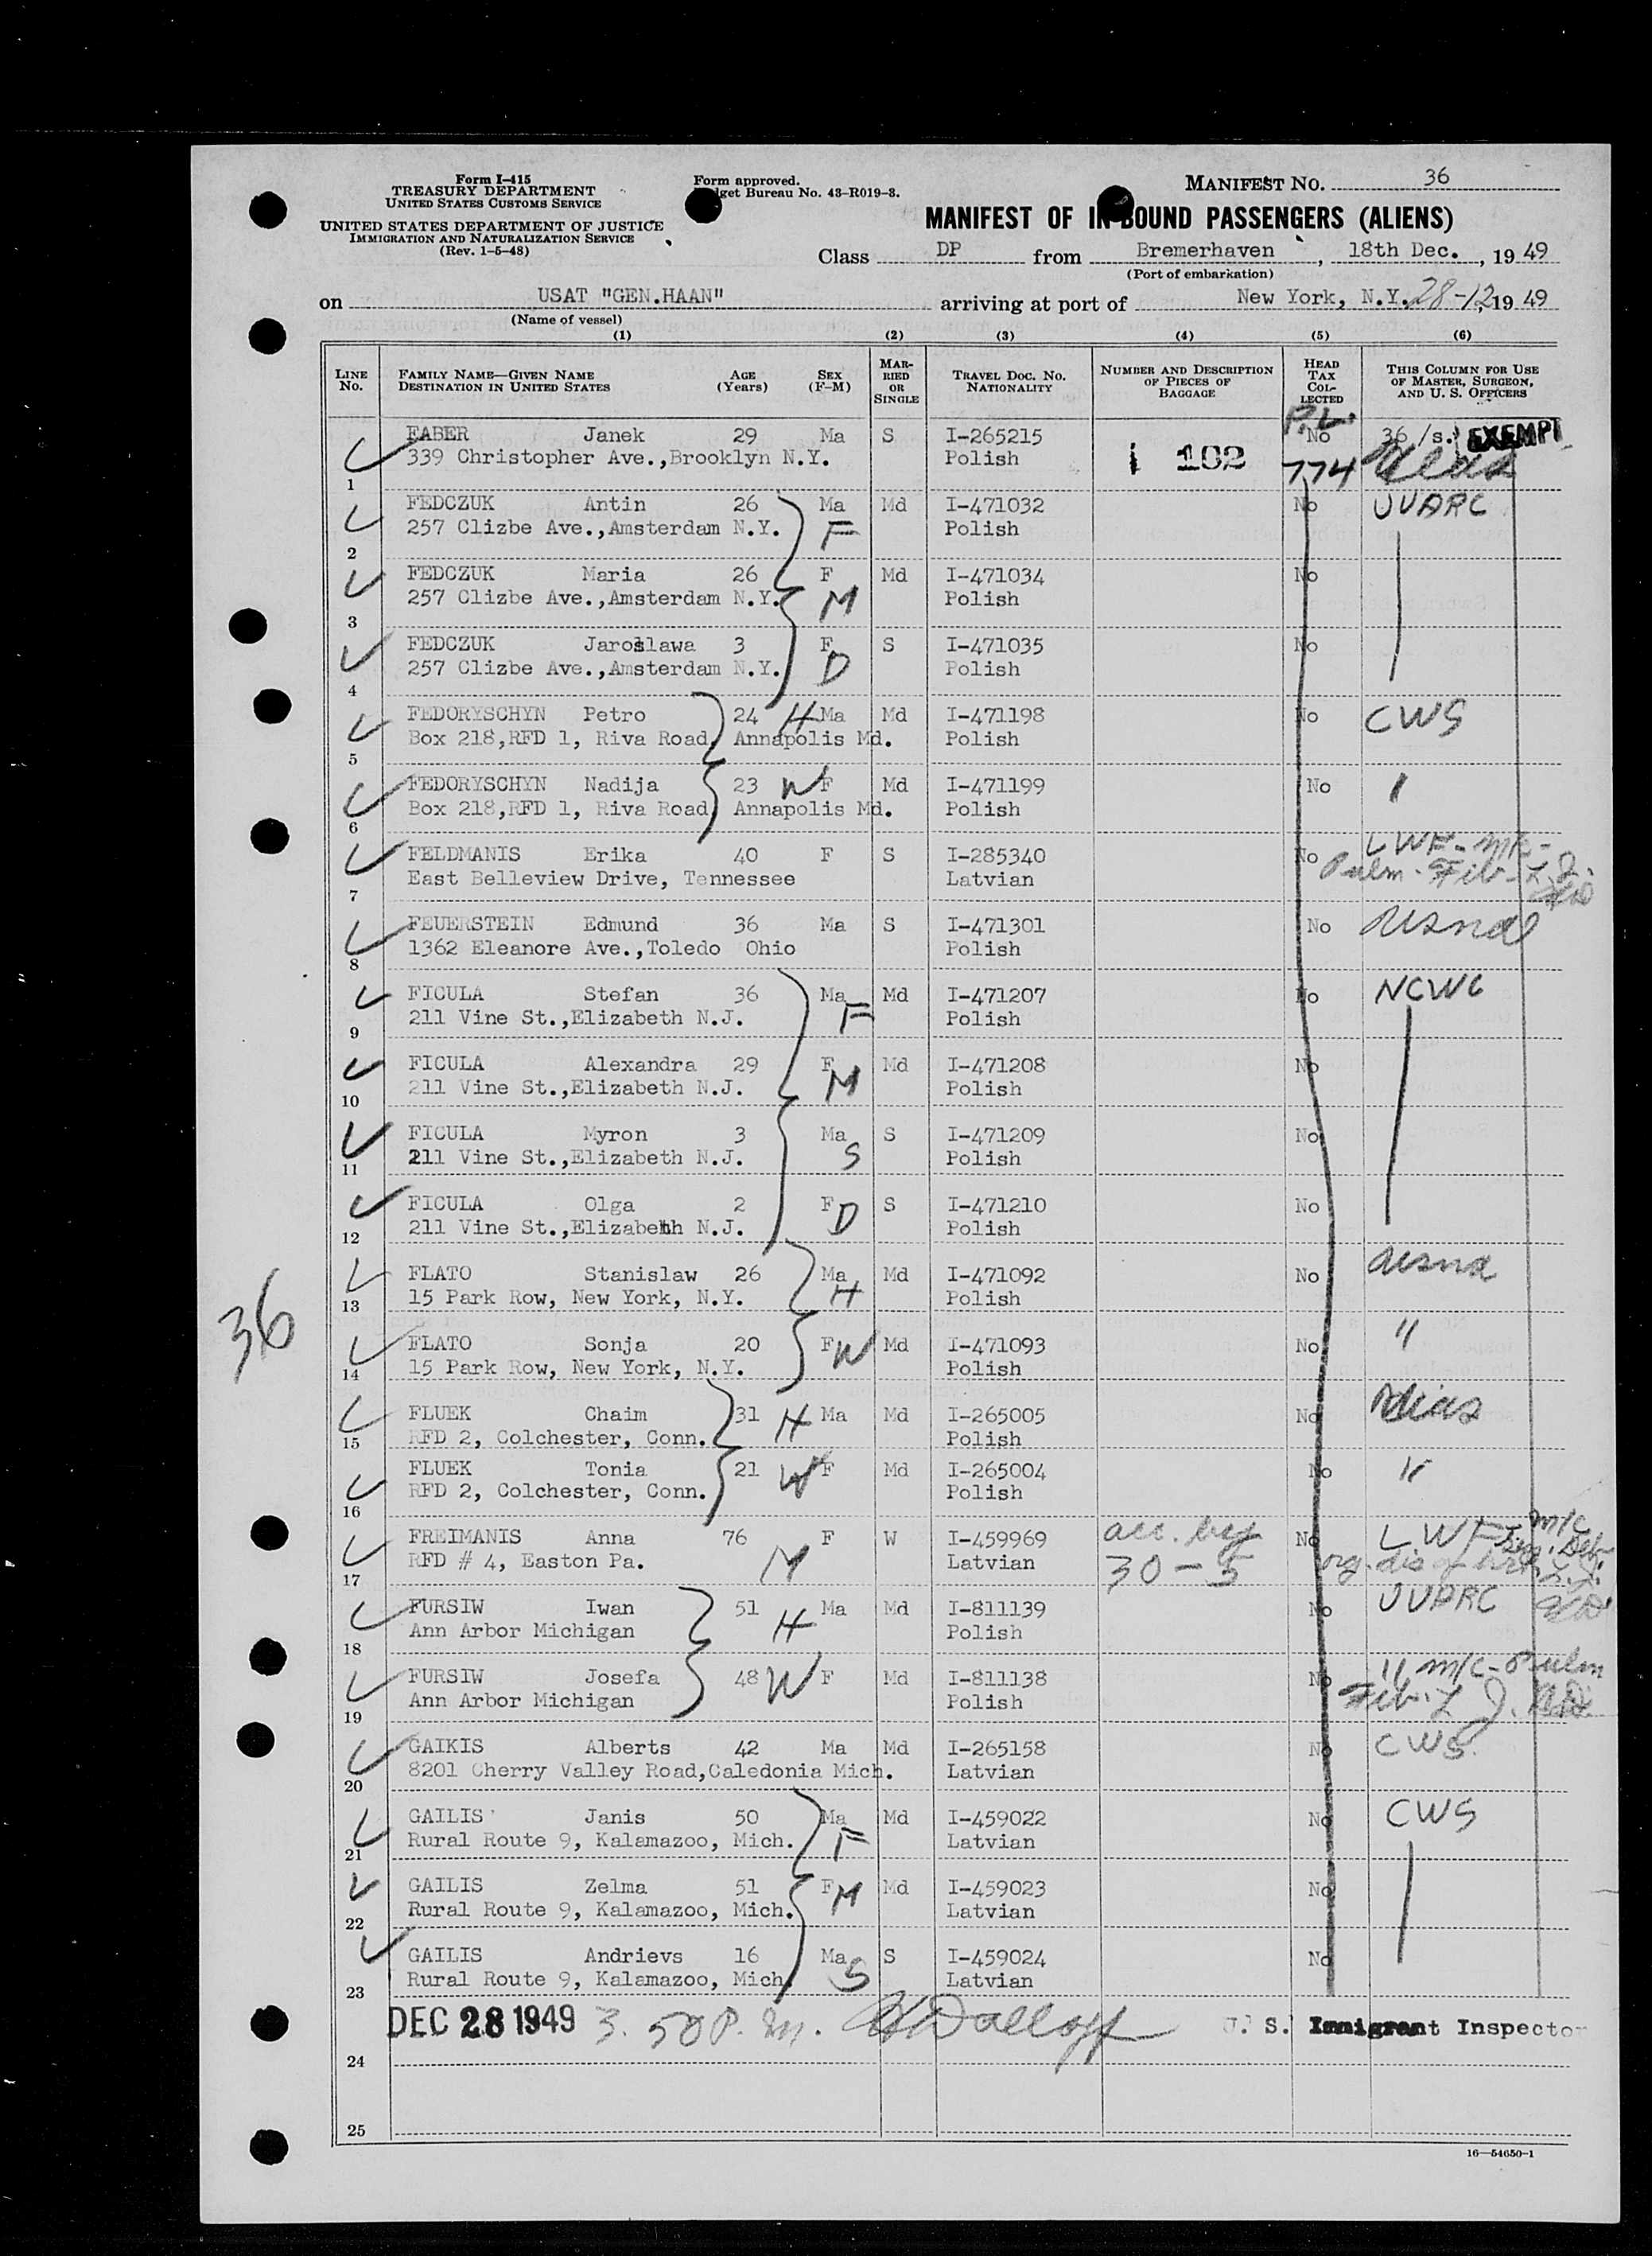 Form I-415
TREASURY DEPARTMENT
UNITED STATES CUSTOMS SERVICE
UNITED STATES DEPARTMENT OF JUSTICE
IMMIGRATION AND NATURALIZATION SERVICE
(Rev. 1-5-48)
Form approved.
get Bureau No. 43-R019-3.
MANIFEST NO. 36
MANIFEST OF IN-BOUND PASSENGERS (ALIENS)
Class DP from Bremerhaven, 18th Dec., 19 49
(Port of embarkation)
on USAT "GEN.HAAN" arriving at port of New York, N.Y. 28-12, 19 49
(Name of vessel)
(1) (2) (3) (4) (5) (6)
LINE No. FAMILY NAME—GIVEN NAME DESTINATION IN UNITED STATES AGE (Years) SEX (F-M) MARRIED OR SINGLE TRAVEL DOC. NO. NATIONALITY NUMBER AND DESCRIPTION OF PIECES OF BAGGAGE HEAD TAX COLLECTED THIS COLUMN FOR USE OF MASTER, SURGEON, AND U. S. OFFICERS
P.L.
FABER Janek 29 Ma S I-265215 No 36/s. EXEMPT
339 Christopher Ave.,Brooklyn N.Y. Polish 102 774
1
FEDCZUK Antin 26 Ma Md I-471032 No UUARC
257 Clizbe Ave.,Amsterdam N.Y. F Polish
2
FEDCZUK Maria 26 F Md I-471034 No
257 Clizbe Ave.,Amsterdam N.Y. M Polish
3
FEDCZUK Jaroslawa 3 F S I-471035 No
257 Clizbe Ave.,Amsterdam N.Y. D Polish
4
FEDORYSCHYN Petro 24 H Ma Md I-471198 No CWS
Box 218,RFD 1, Riva Road, Annapolis Md. Polish
5
FEDORYSCHYN Nadija 23 W F Md I-471199 No "
Box 218,RFD 1, Riva Road, Annapolis Md. Polish
6
FELDMANIS Erika 40 F S I-285340 No LWF - m/c -
East Belleview Drive, Tennessee Latvian Pulm. Fib.
7
FEUERSTEIN Edmund 36 Ma S I-471301 No usna
1362 Eleanore Ave.,Toledo Ohio Polish
8
FICULA Stefan 36 Ma Md I-471207 No NCWC
211 Vine St.,Elizabeth N.J. F Polish
9
FICULA Alexandra 29 F Md I-471208 No
211 Vine St.,Elizabeth N.J. M Polish
10
FICULA Myron 3 Ma S I-471209 No
211 Vine St.,Elizabeth N.J. S Polish
11
FICULA Olga 2 F D S I-471210 No
211 Vine St.,Elizabeth N.J. Polish
12
FLATO Stanislaw 26 Ma Md I-471092 No usna
15 Park Row, New York, N.Y. H Polish
13
36
FLATO Sonja 20 F W Md I-471093 No "
15 Park Row, New York, N.Y. Polish
14
FLUEK Chaim 31 H Ma Md I-265005 No
RFD 2, Colchester, Conn. Polish
15
FLUEK Tonia 21 W F Md I-265004 No "
RFD 2, Colchester, Conn. Polish
16
FREIMANIS Anna 76 F W I-459969 acc. by No LWF m/c
RFD # 4, Easton Pa. M Latvian 30-5
17
FURSIW Iwan 51 Ma Md I-811139 No UUARC
Ann Arbor Michigan H Polish
18
FURSIW Josefa 48 W F Md I-811138 No " m/c - Pulm
Ann Arbor Michigan Polish Fib.
19
GAIKIS Alberts 42 Ma Md I-265158 No CWS.
8201 Cherry Valley Road,Caledonia Mich. Latvian
20
GAILIS Janis 50 Ma Md I-459022 No CWS
Rural Route 9, Kalamazoo, Mich. F Latvian
21
GAILIS Zelma 51 F M Md I-459023 No
Rural Route 9, Kalamazoo, Mich. Latvian
22
GAILIS Andrievs 16 Ma S I-459024 No
Rural Route 9, Kalamazoo, Mich. S Latvian
23
DEC 28 1949 3.50 P.m. U. S. Immigrant Inspector
24
25
16—54650-1